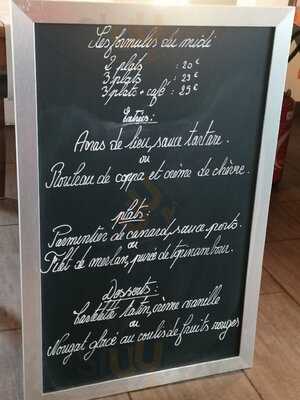 Les formules du midi
2 plats : 20€
3 plats : 23€
3 plats + café : 25€
Entrées :
Acras de lieu, sauce tartare.
ou
Rouleau de coppa et crème de chèvre.
plats :
Parmentier de canard, sauce porto.
ou
Filet de merlan, purée de topinambour.
Desserts :
tartelette tatin, crème vanille
ou
Nougat glacé au coulis de fruits rouges